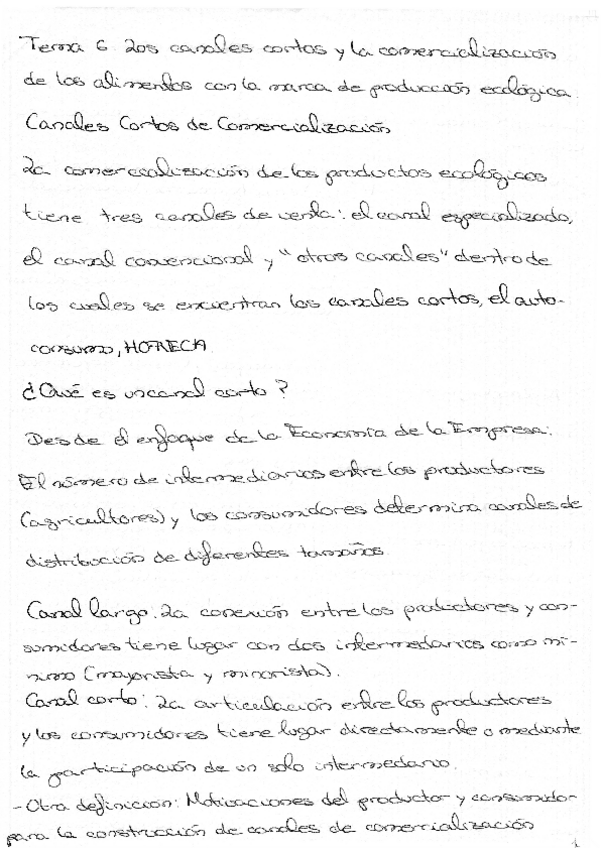 Tema 6 Los canales cortos y la comercialización
de los alimentos con la marca de producción ecológica.
Canales Cortos de Comercialización
La comercialización de los productos ecológicos
tiene tres canales de venta: el canal especializado,
el canal convencional y "otros canales" dentro de
los cuales se encuentran los canales cortos, el auto-
consumo, HORECA
¿Qué es un canal corto?
Desde el enfoque de la Economía de la Empresa:
El número de intermediarios entre los productores
(agricultores) y los consumidores determina canales de
distribución de diferentes tamaños.
Canal largo: La conexión entre los productores y con-
sumidores tiene lugar con dos intermedarios como mí-
nimo (mayorista y minorista).
Canal corto: La articulación entre los productores
y los consumidores tiene lugar directamente o mediante
la participación de un solo intermedario.
- Otra definición: Motivaciones del productor y consumidor
para la construcción de canales de comercialización
1